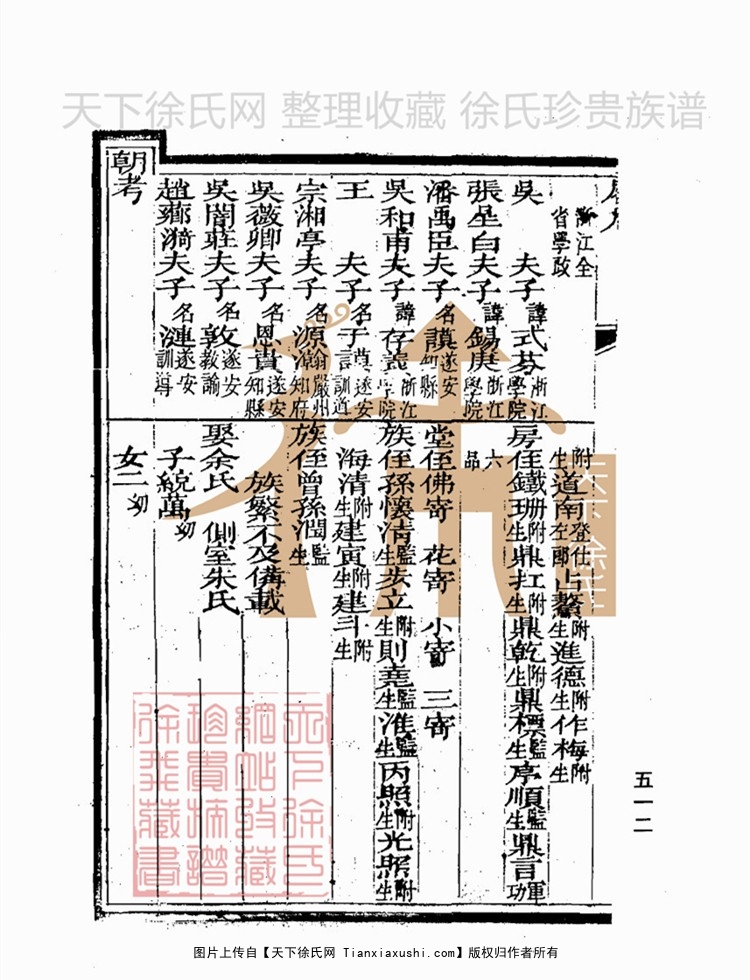 天下徐氏网 整理收藏 徐氏珍贵族谱
浙江全
省學政
吳 夫子諱式芬浙江學院
張星白夫子諱錫庚浙江學院
潘禹臣夫子名遂安縣
吳和甫夫子諱存義浙江學院
王 夫子名子遂安訓導
宗湘亭夫子名源瀚嚴州知府
吳薇卿夫子名恩貴遂安知縣
吳閬莊夫子名敦遂安教諭
趙薌漪夫子名漣遂安訓導
朝考
附生道南登仕左郎占鰲附生進德附生作梅附生作楫附生
房侄鐵珊附生鼎扛附生鼎乾附生鼎標監生序順監生鼎言軍功
六品
堂侄佛寄 花寄 小寄 三寄
族侄孫懷清監生步立附生則堯監生淮監生丙照附生光照附生
海清附生建寅附生建斗附生
族侄曾孫潤監生
族繁不及備載
娶余氏 側室朱氏
子統萬幼
女二幼
五一二
天下徐氏
天下徐氏
网站收藏
珍貴族譜
徐我藏書
图片上传自【天下徐氏网 Tianxiaxushi.com】版权归作者所有